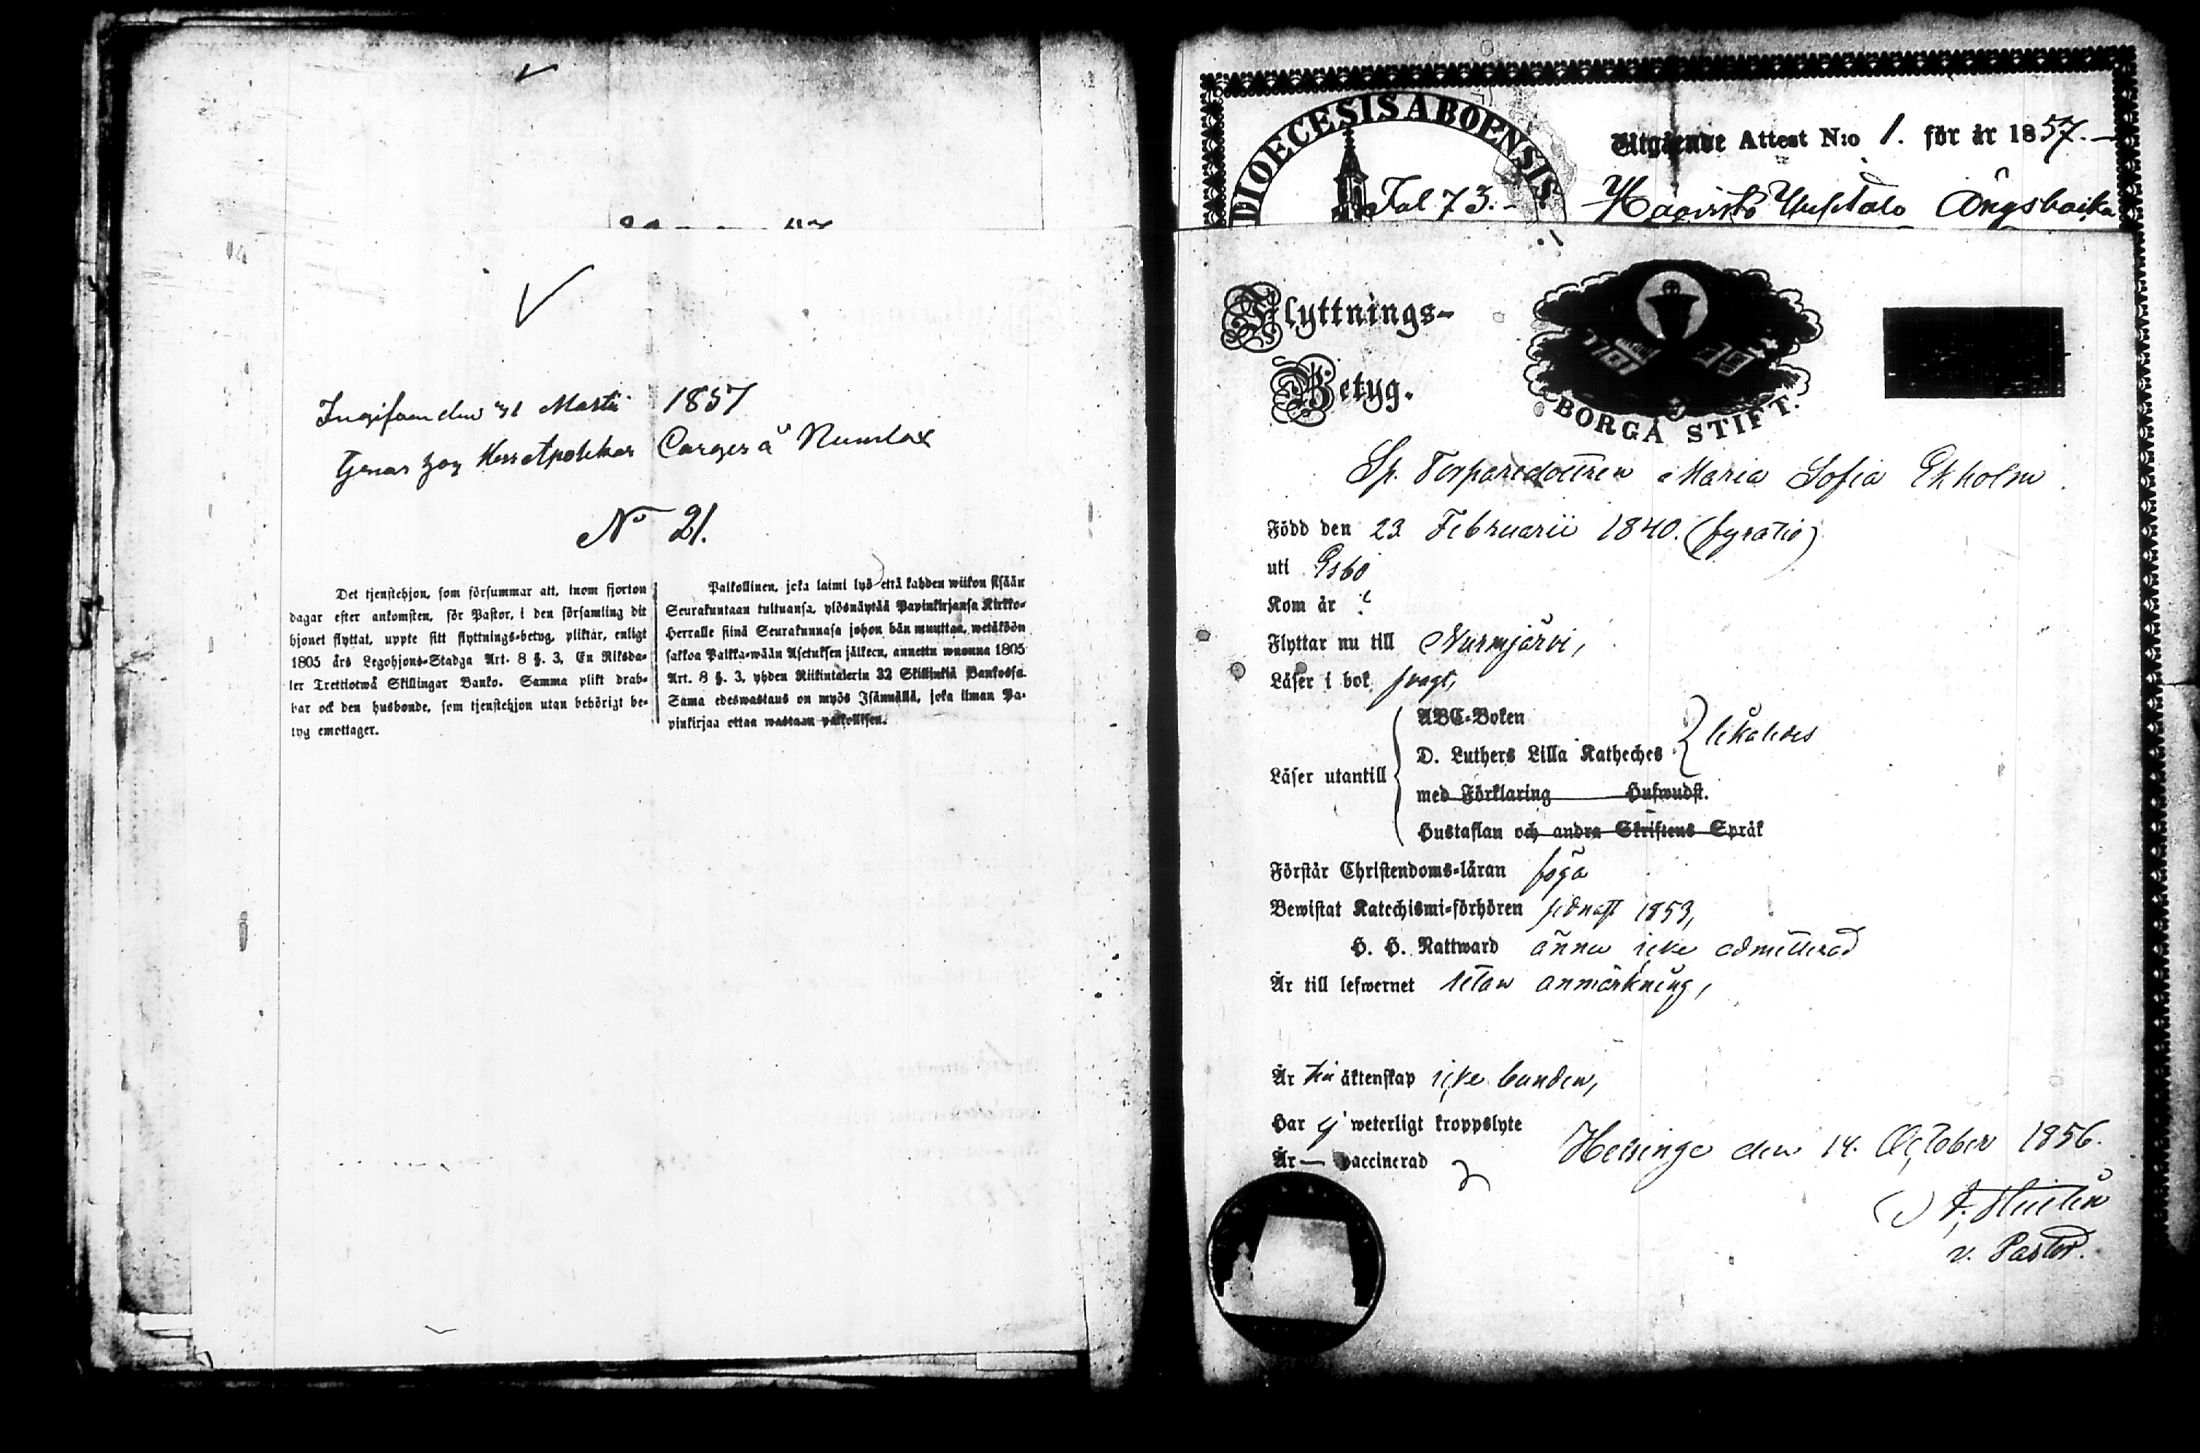 Ingifven den 31 Martii 1857
tjenar hos Herr Apothekar Carger å Numlax
No 21.
Det tjenstehjon, som försummar att, inom fjorton
dagar efter ankomsten, för Pastor, i den församling dit
hjonet flyttat, uppte sitt flyttnings-betyg, pliktar, enligt
1805 års Legohjons-Stadga Art. 8 §. 3, En Riksda-
ler Trettiotwå Skillingar Banko. Samma plikt drab-
bar ock den husbonde, som tjenstehjon utan behörigt be-
tyg emottager.
Palkollinen, joka laimi lyö että kahden wiikon sisään
Seurakuntaan tultuansa, ylösnäytää Papinkirjansa Kirkko-
Herralle siinä Seurakunnasa johon hän muuttaa, wetäköön
sakkoa Palkka-wään Asetuksen jälkeen, annettu wuonna 1805
Art. 8 §. 3, yhden Riikintalerin 32 Skillinkiä Bankossa.
Sama edeswastaus on myös Isännällä, joka ilman Pa-
pinkirjaa ottaa wastaan palkollisen.
DIOECESIS ABOENSIS.
Utgående Attest N:o 1. för år 1857.
Fol 73. Haavisto Ångsbacka
Flyttnings-
Betyg.
BORGÅ STIFT.
Sp. Torparedottren Maria Sofia Ekholm.
Född den 23 Februarii 1840. (fyratio)
uti Esbo
Kom år
Flyttar nu till Nurmjärvi,
Läser i bok svagt,
Läser utantill
ABC-Boken
D. Luthers Lilla Katheches } likaledes
med Förklaring Hufwudst.
Hustaflan och andra Skriftens Språk
Förstår Christendoms-läran föga
Bewistat Katechismi-förhören sednast 1853,
H. H. Nattward ännu icke admitterad
Är till lefwernet utan anmärkning,
Är till äktenskap icke bunden,
Har ej weterligt kroppslyte
Är — vaccinerad
Helsinge den 14. October 1856.
v. Pastor.